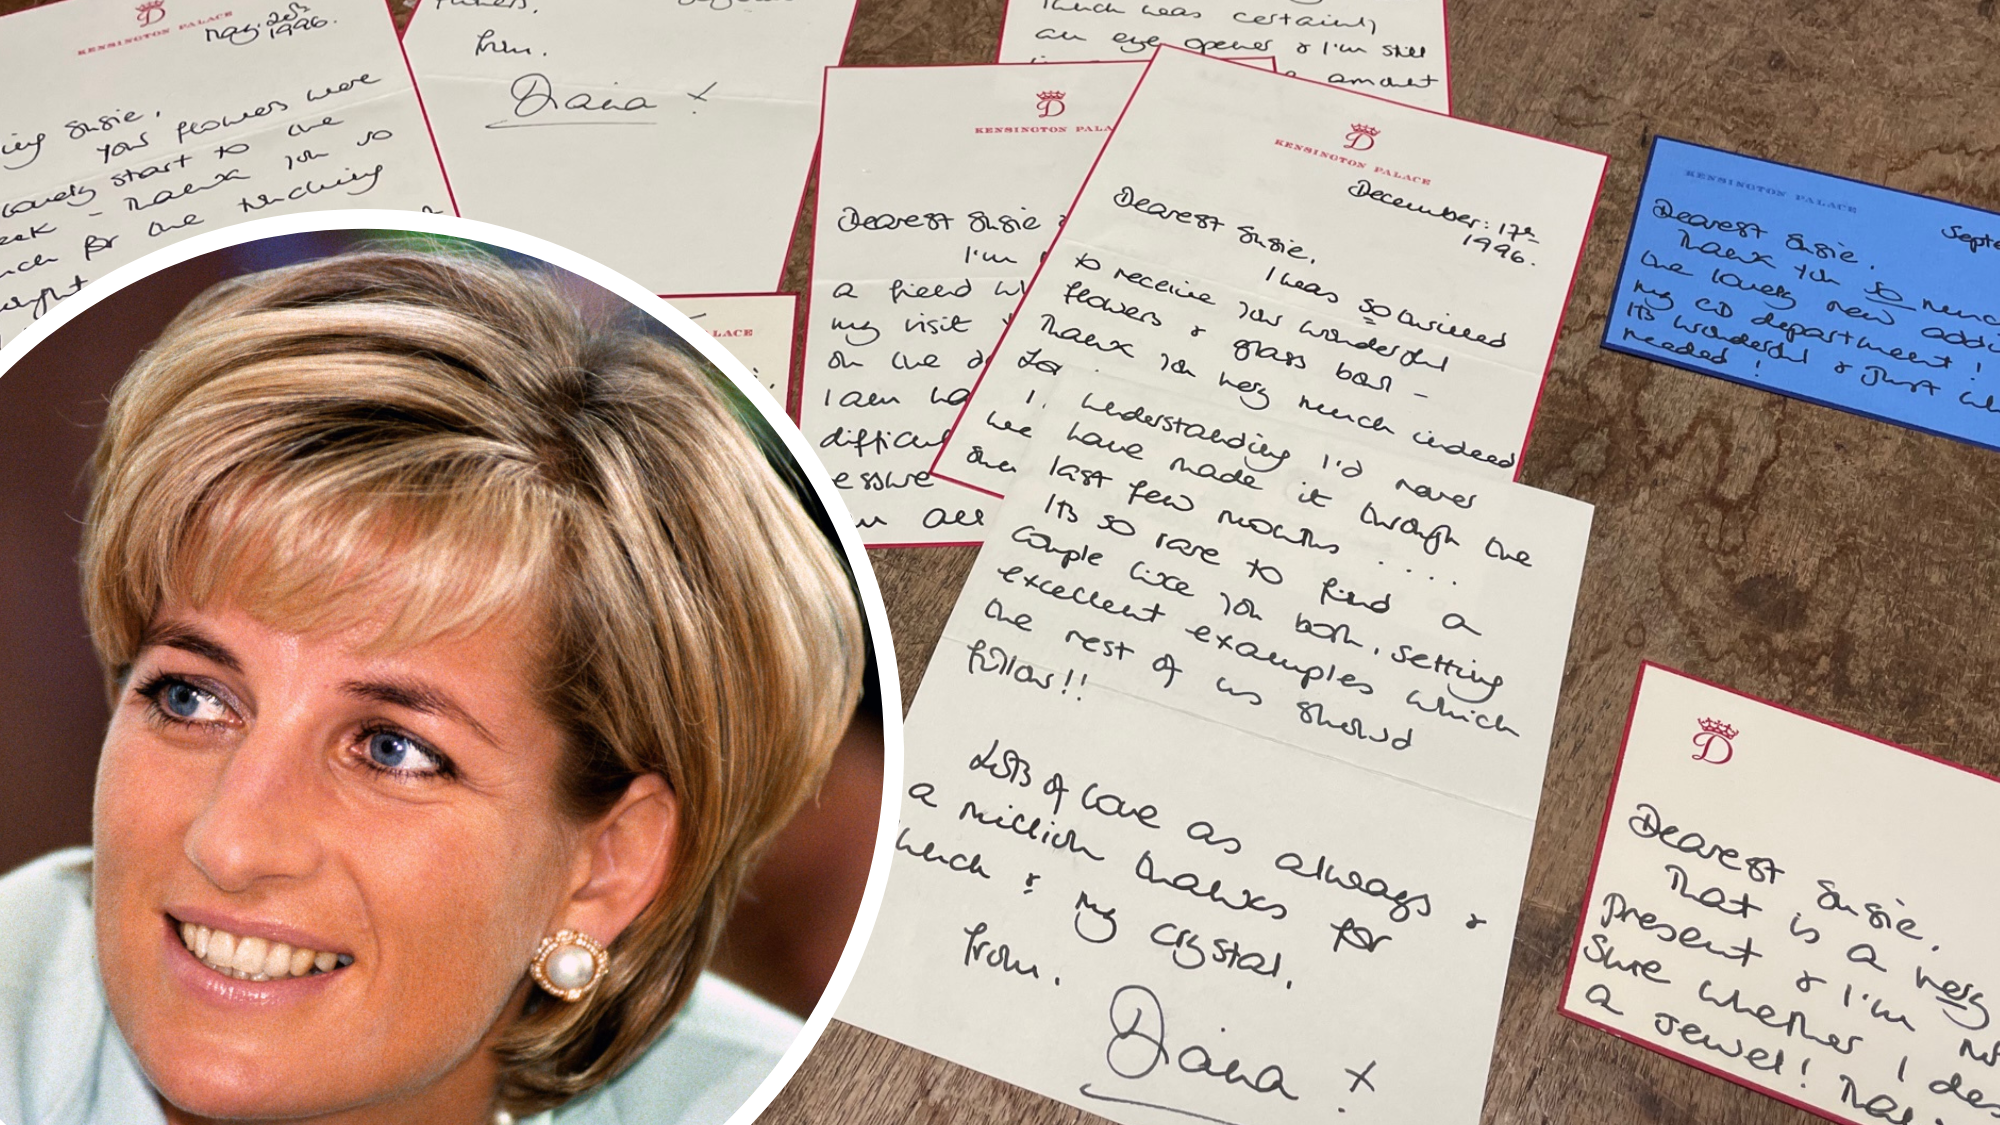 KENSINGTON PALACE
May. 20th
1996.
Susie,
Your flowers were
lovely start to the
Thank you so
for the touching
from.
Diana x
which was certainly
an eye opener & I'm still
amount
KENSINGTON PALA
Dearest Susie
I'm
a friend
my visit
on the
I am
difficul
essure
all
LACE
KENSINGTON PALACE
December: 17th
1996.
Dearest Susie,
I was so thrilled
to receive your wonderful
flowers & glass bowl -
Thank you very much indeed
understanding I'd never
have made it through the
last few months ....
Its so rare to find a
couple like you both, setting
excellent examples which
the rest of us should
follow!!
Lots of love as always &
a million thanks for
lunch & my crystal,
from.
Diana x
KENSINGTON PALACE
Septe
Dearest Susie,
Thank you so much
the lovely new addi
my CD department!
Its wonderful & just
needed!
D
Dearest Susie,
That is a very
present & I'm not
sure whether I des
a jewel! That